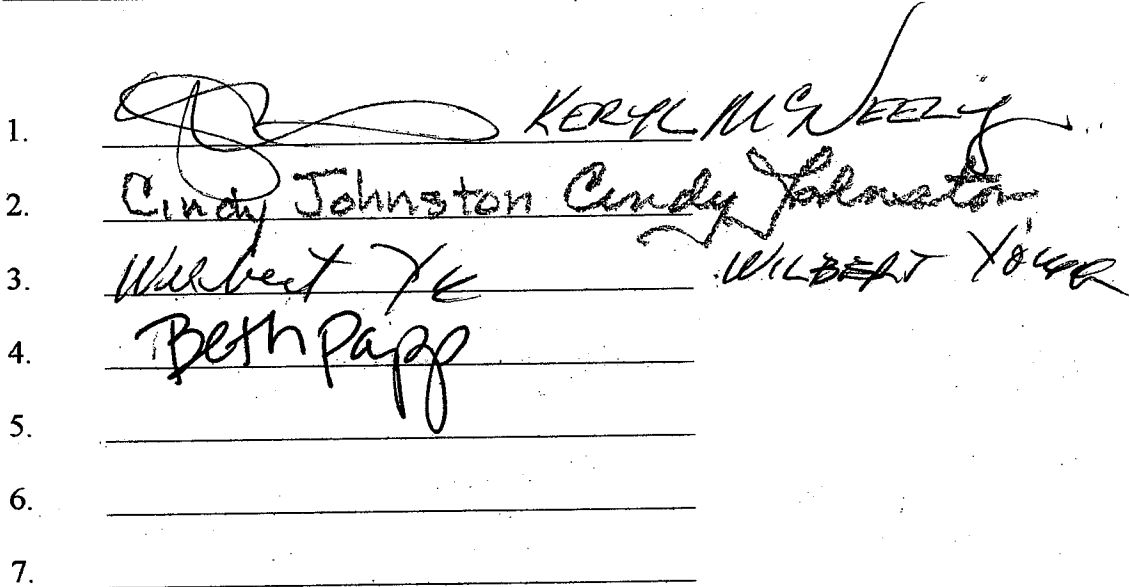 1. KERYL MCNEELY
2. Cindy Johnston Cindy Johnston
3. Wilbert WILBERT
4. Beth Papp
5.
6.
7.